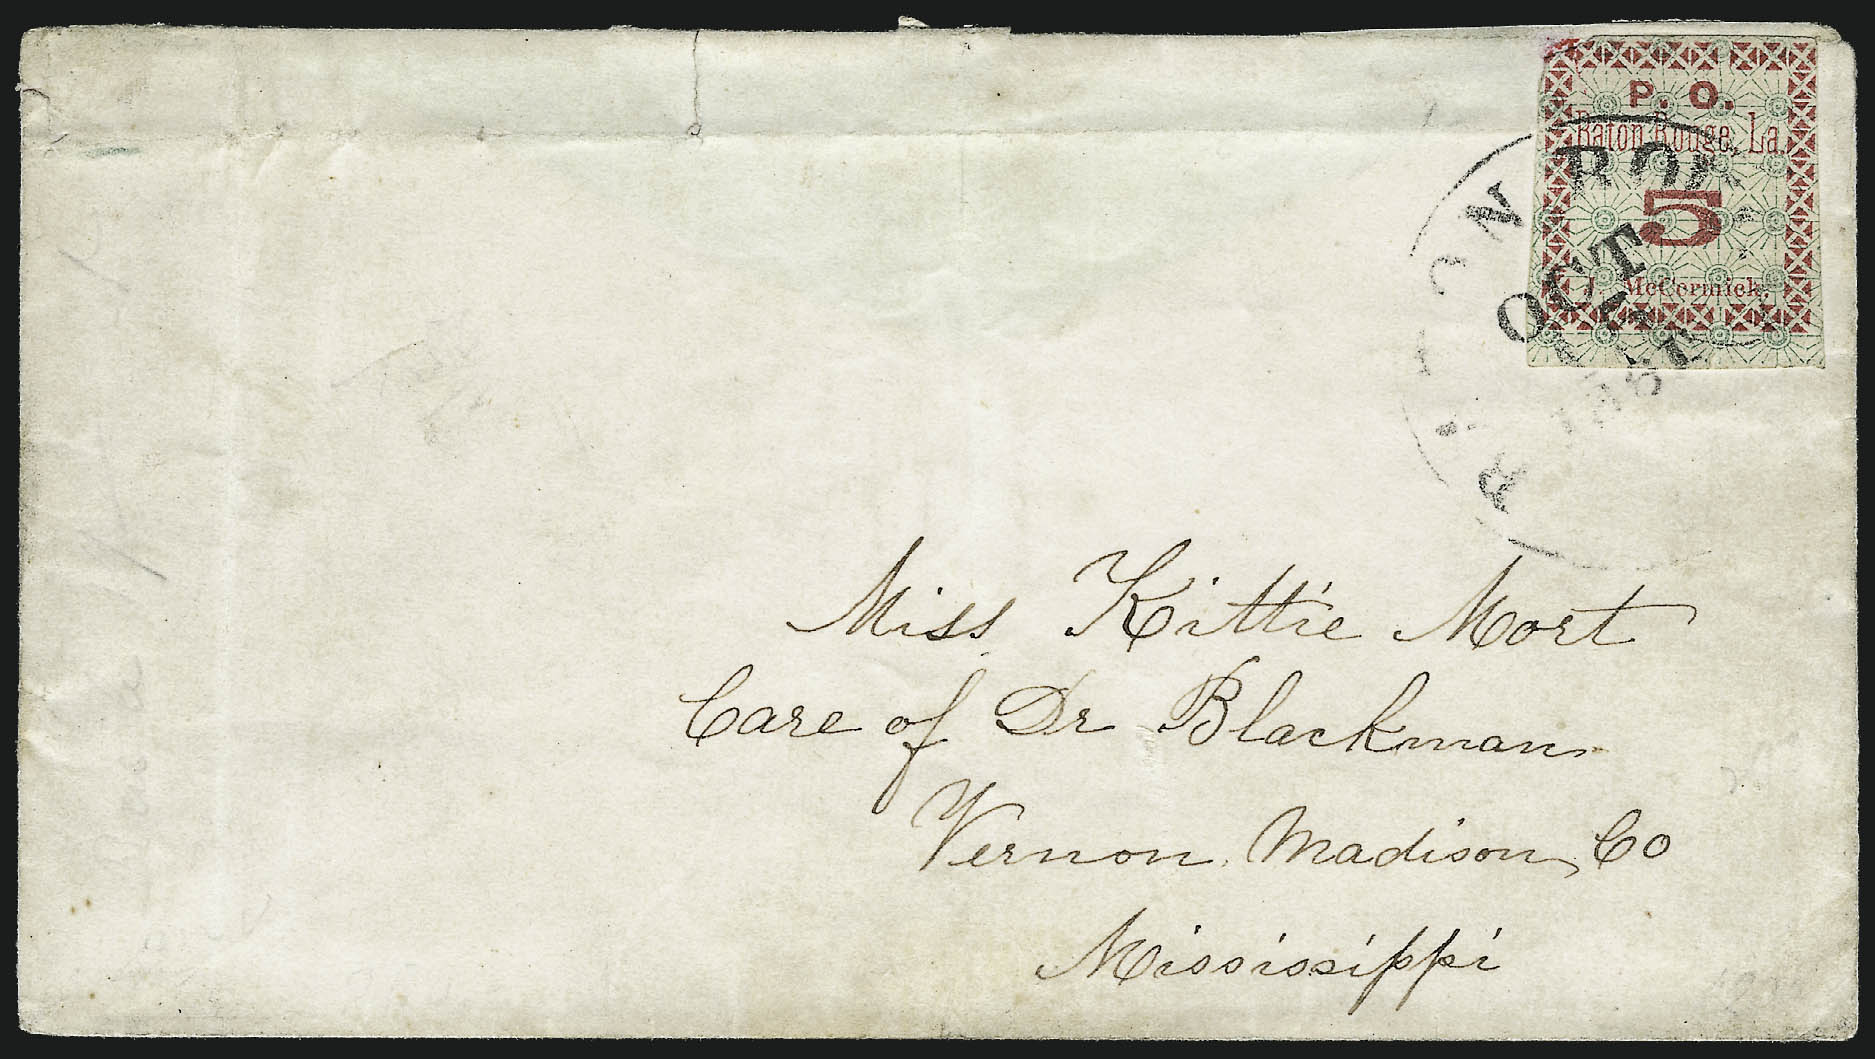 P. O.
Baton Rouge, La.
5
J. McCormick.
BATON ROU
OCT
Miss Kittie Mort
Care of Dr Blackman
Vernon Madison Co
Mississippi